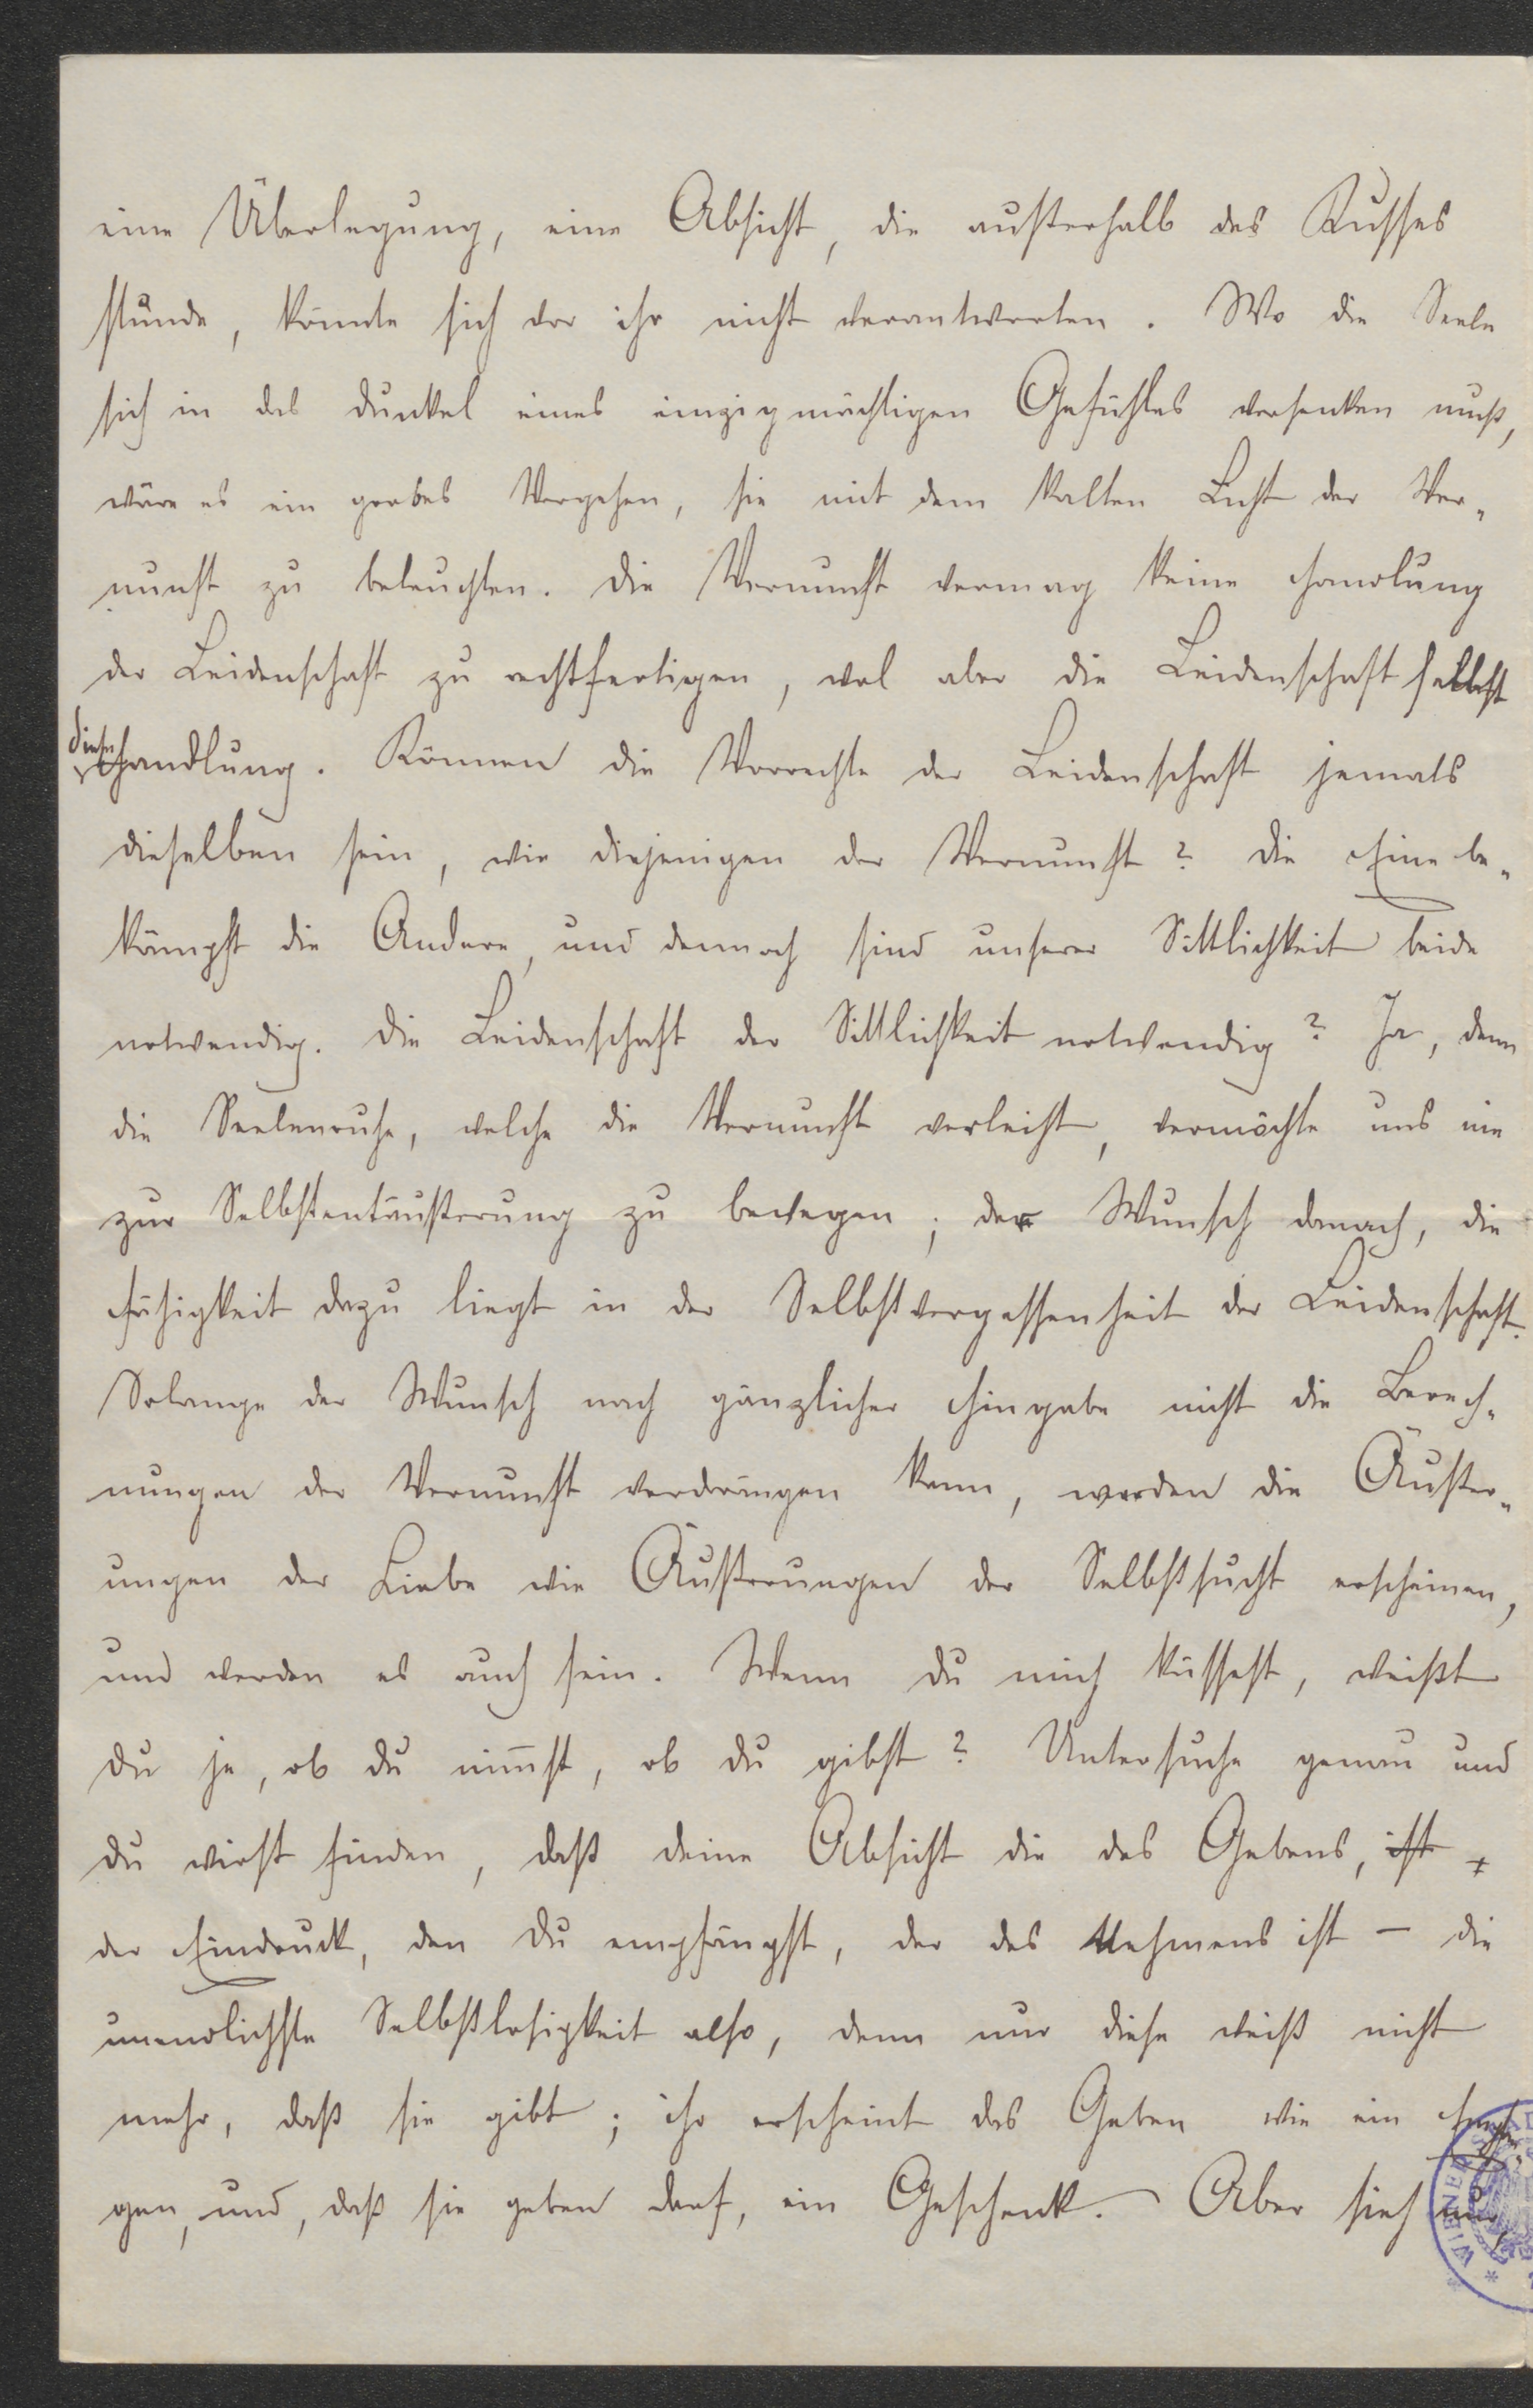 eine Überlegung, eine Absicht, die außerhalb des Kusses
stünde, könnte sich vor ihr nicht verantworten. Wo die Seele
sich in das Dunkel eines einzig mächtigen Gefühles versenken muß,
wäre es ein grobes Vergehen, sie mit dem kalten Licht der Ver-
nunft zu beleuchten. Die Vernunft vermag keine Handlung
der Leidenschaft zu rechtfertigen, wol aber die Leidenschaft selbst
diese Handlung. Können die Vorrechte der Leidenschaft jemals
dieselben sein, wie diejenigen der Vernunft? Die Eine be-
kämpft die Andere, und dennoch sind unserer Sittlichkeit beide
notwendig. Die Leidenschaft der Sittlichkeit notwendig? Ja, denn
die Seelenruhe, welche die Vernunft verleiht, vermöchte uns nie
zur Selbstentäußerung zu bewegen; der Wunsch danach, die
Fähigkeit dazu liegt in der Selbstvergessenheit der Leidenschaft.
Solange der Wunsch nach gänzlicher Hingabe nicht die Berech-
nungen der Vernunft verdrängen kann, werden die Äußer-
ungen der Liebe wie Äußerungen der Selbstsucht erscheinen,
und werden es auch sein. Wenn du mich küssest, weißt
du je, ob du nimmst, ob du gibst? Untersuche genau und
du wirst finden, daß deine Absicht die des Gebens, ist
der Eindruck, den du empfängst, der des Nehmens ist – die
unendlichste Selbstlosigkeit also, denn nur diese weiß nicht
mehr, daß sie gibt; ihr erscheint das Geben wie ein
gen, und, daß sie geben darf, ein Geschenk. Aber sieh nur,
WIENER